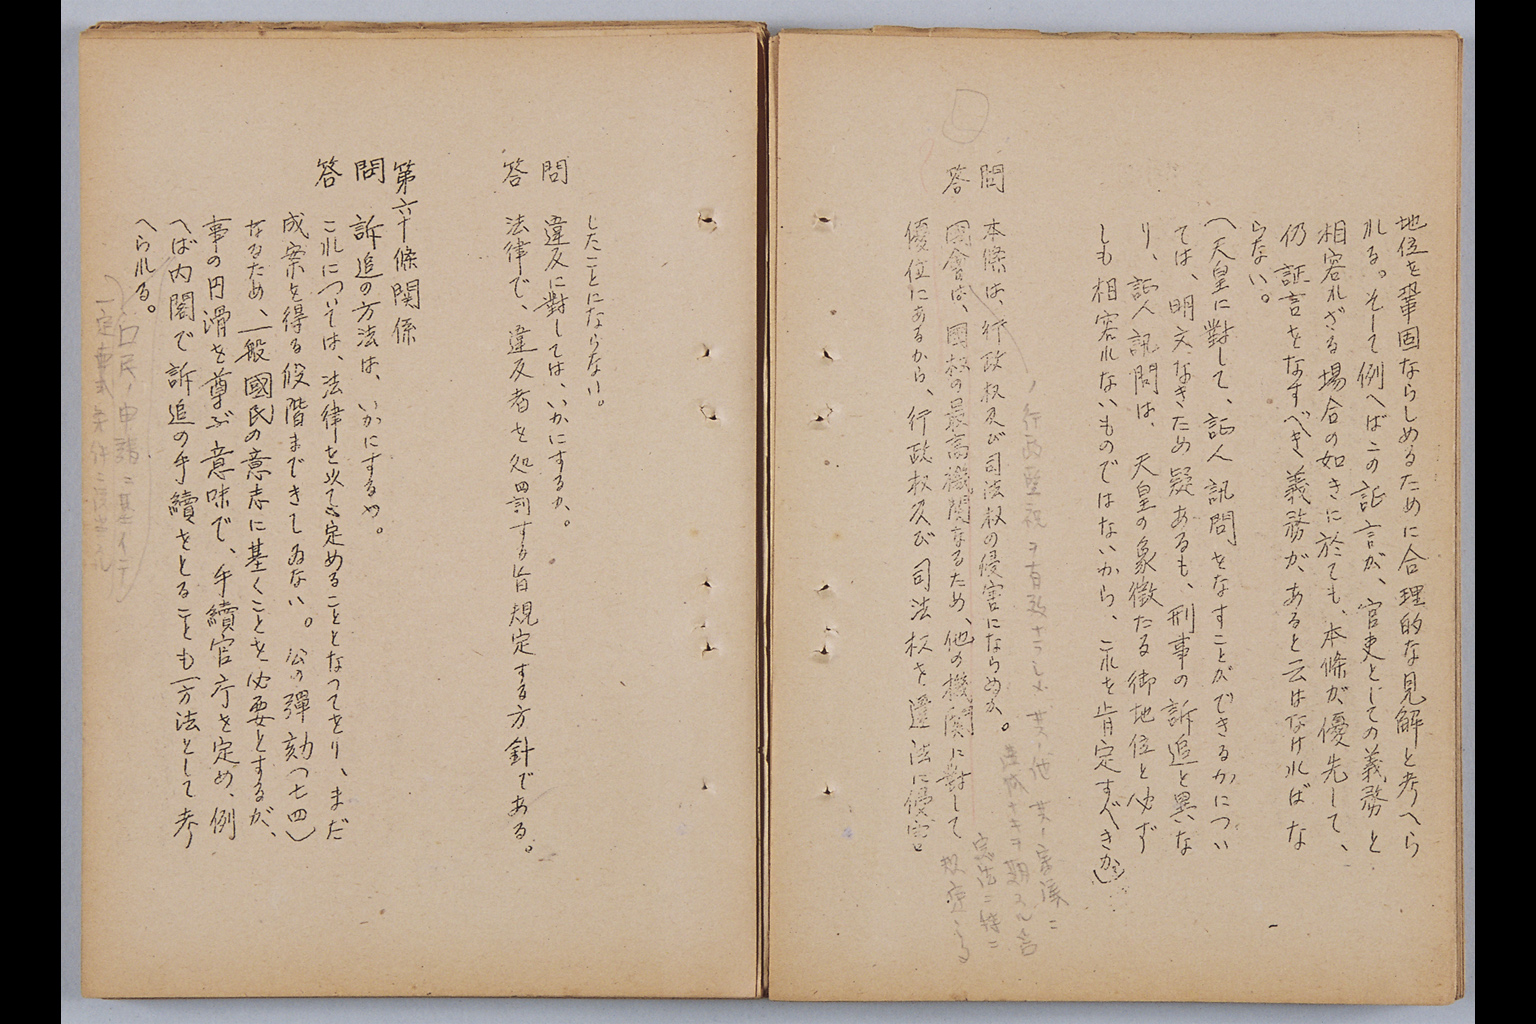 地位を鞏固ならしめるために合理的な見解と考へら
れる。そして例へばこの証言が、官吏としての義務と
相容れざる場合の如きに於ても、本條が優先して、
仍証言をなすべき義務が、あると云はなければな
らない。
(天皇に對して、証人訊問をなすことができるかについ
ては、明文なきため疑あるも、刑事の訴追と異な
り、証人訊問は、天皇の象徴たる御地位と必ず
しも相容れないものではないから、これを肯定すべきか)
問 本條は、行政权及び司法权の侵害にならぬか。
答 國會は、國权の最高機関なるため、他の機関に對して
優位にあるから、行政权及び司法权を違法に侵害
したことにならない。
問 違反に對しては、いかにするか。
答 法律で、違反者を処罰する旨規定する方針である。
第六十條関係
問 訴追の方法は、いかにするや。
答 これについては、法律を以て定めることとなつてをり、まだ
成案を得る段階まできてゐない。公の彈劾(七四)
なるため、一般國民の意志に基くことを必要とするが、
事の円滑を尊ぶ意味で、手續官庁を定め、例
へば内閣で訴追の手續をとることも一方法として考
へられる。
ノ申請ニ基イテ